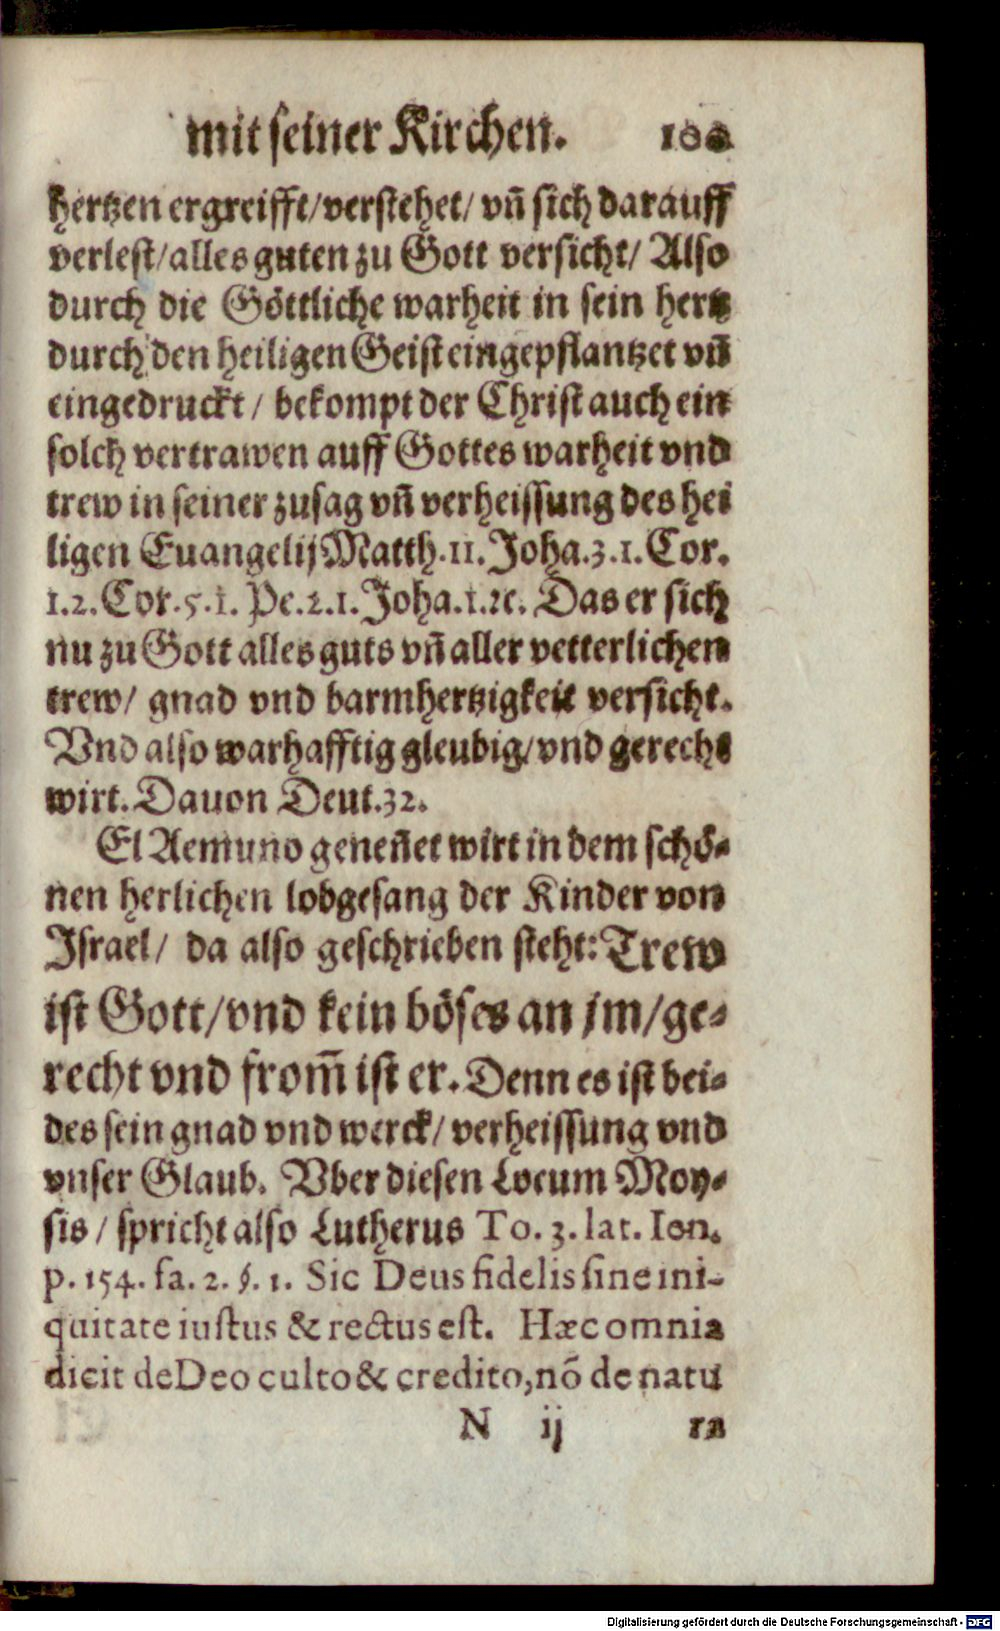 mit seiner Kirchen.
hertzen ergreifft/verstehet/ vñ sich darauff
verlest/alles guten zu Gott versicht/ Also
durch die Göttliche warheit in sein hertz
durch den heiligen Geist eingepflantzet vñ
eingedruckt / bekompt der Christ auch ein
solch vertrawen auff Gottes warheit vnd
trew in seiner zusag vñ verheissung des hei
ligen Euangelij Matth.11. Joha.3.1.Cor.
1.2.Cor.5.1. Pe.2.1.Joha.1.ꝛc. Das er sich
nu zu Gott alles guts vñ aller vetterlichen
trew/ gnad vnd barmhertzigkeit versicht.
Vnd also warhafftig gleubig/vnd gerecht
wirt. Dauon Deut.32.
El Aemuno geneñet wirt in dem schö-
nen herlichen lobgesang der Kinder von
Israel/ da also geschrieben steht: Trew
ist Gott/vnd kein böses an jm/ge-
recht vnd from̃ ist er. Denn es ist bei-
des sein gnad vnd werck/ verheissung vnd
vnser Glaub. Vber diesen Locum Moy-
sis / spricht also Lutherus To. 3. lat. Ien.
p. 154. fa. 2. §. 1. Sic Deus fidelis sine ini-
quitate iustus & rectus est. Hæc omnia
dicit de Deo culto & credito, nō de natu
N ij ra
Digitalisierung gefördert durch die Deutsche Forschungsgemeinschaft - DFG